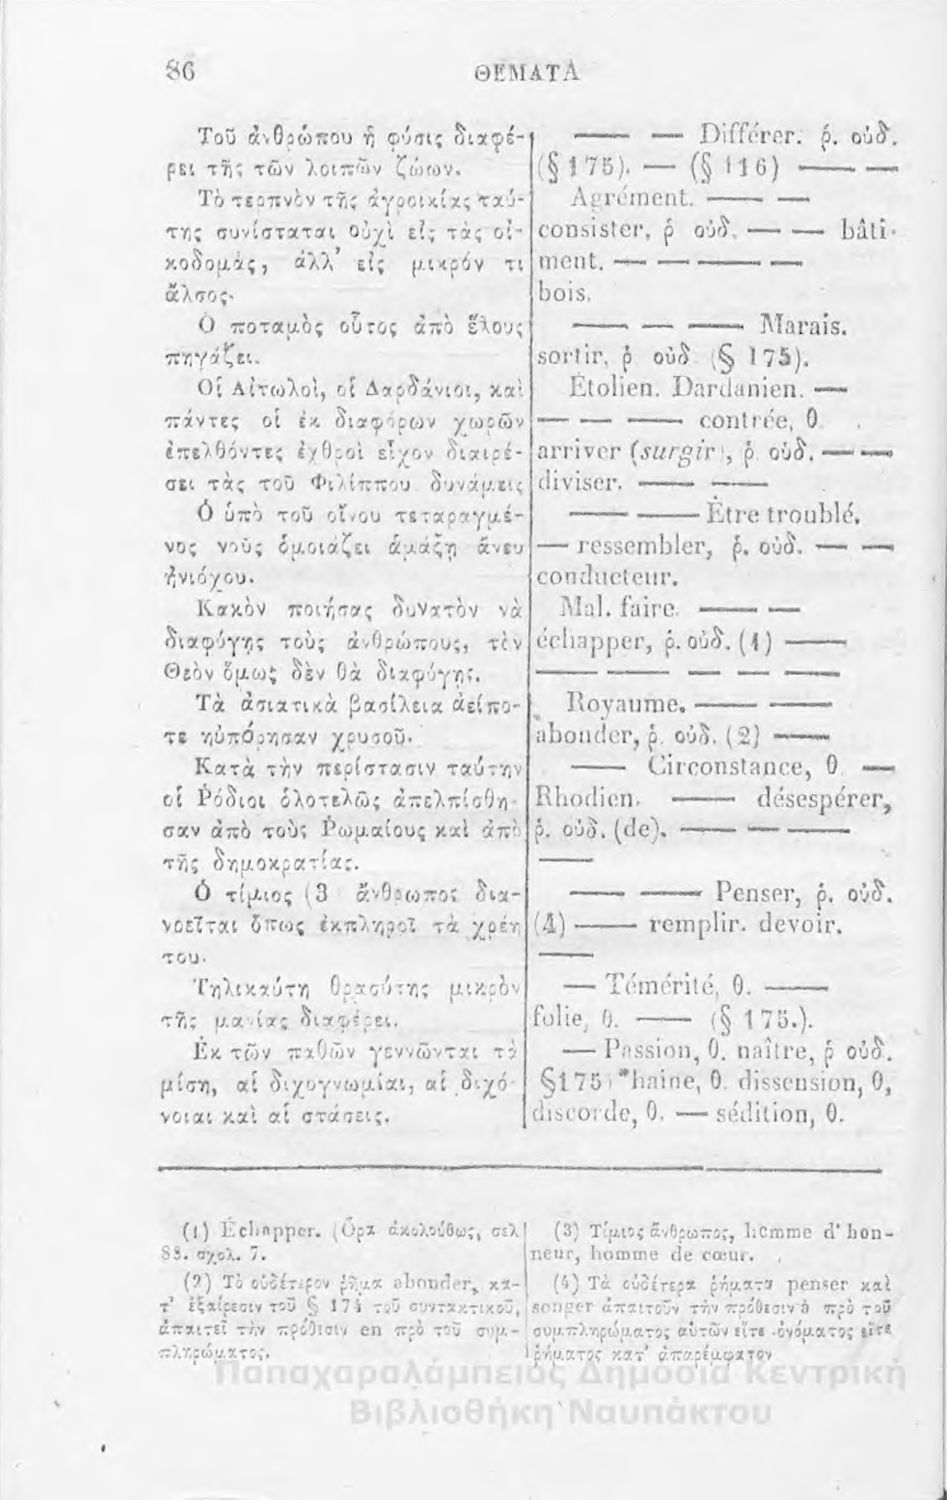 86 ΘΕΜΑΤΑ
Τοῦ ἀνθρώπου ἡ φύσις διαφέ-
ρει τῆς τῶν λοιπῶν ζώων.
Τὸ τερπνὸν τῆς ἀγροικίας ταύ-
της συνίσταται οὐχὶ εἰς τὰς οἰ-
κοδομὰς, ἀλλ' εἰς μικρόν τι
ἄλσος.
Ὁ ποταμὸς οὗτος ἀπὸ ἕλους
πηγάζει.
Οἱ Αἰτωλοὶ, οἱ Δαρδάνιοι, καὶ
πάντες οἱ ἐκ διαφόρων χωρῶν
ἐπελθόντες ἐχθροὶ εἶχον διαιρέ-
σει τὰς τοῦ Φιλίππου δυνάμεις
Ὁ ὑπὸ τοῦ οἴνου τεταραγμέ-
νος νοῦς ὁμοιάζει ἁμάξῃ ἄνευ
ἡνιόχου.
Κακὸν ποιήσας δυνατὸν νὰ
διαφύγῃς τοὺς ἀνθρώπους, τὸν
Θεὸν ὅμως δὲν θὰ διαφύγῃς.
Τὰ ἀσιατικὰ βασίλεια ἀείπο-
τε ηὐπόρησαν χρυσοῦ.
Κατὰ τὴν περίστασιν ταύτην
οἱ Ῥόδιοι ὁλοτελῶς ἀπελπίσθη-
σαν ἀπὸ τοὺς Ῥωμαίους καὶ ἀπὸ
τῆς δημοκρατίας.
Ὁ τίμιος (3 ἄνθρωπος δια-
νοεῖται ὅπως ἐκπληροῖ τὰ χρέη
του.
Τηλικαύτη θρασύτης μικρὸν
τῆς μανίας διαφέρει.
Ἐκ τῶν παθῶν γεννῶνται τὰ
μίση, αἱ διχογνωμίαι, αἱ διχό-
νοιαι καὶ αἱ στάσεις.
——— — Différer. ῥ. οὐδ.
(§ 175). — (§ 116) ——— —
Agrément. ——— —
consister, ῥ οὐδ. — — bâti-
ment. — — ——— —
bois.
——— — ——— Marais.
sortir, ῥ οὐδ (§ 175).
Étolien. Dardanien. —
— — ——— contrée, θ.
arriver (surgir), ῥ. οὐδ. — —
diviser. ——— ———
——— ——— Être troublé.
— ressembler, ῥ. οὐδ. — —
conducteur.
Mal. faire. ——— —
échapper, ῥ. οὐδ. (1) ———
——— ——— — — — ———
Royaume. ——— ———
abonder, ῥ. οὐδ. (2) ———
——— Circonstance, θ. —
Rhodien. ——— désespérer,
ῥ. οὐδ. (de). ——— — ———
———
——— ——— Penser, ῥ. οὐδ.
(4) ——— remplir. devoir.
———
— Témérité, θ. ———
folie, θ. ——— (§ 175.).
— Passion, θ. naître, ῥ οὐδ.
§175) *haine, θ. dissension, θ,
discorde, θ. — sédition, θ.
(1) Échapper. (Ὅρα ἀκολούθως, σελ
88. σχολ. 7.
(2) Τὸ οὐδέτερον ῥῆμα abonder, κα-
τ' ἐξαίρεσιν τοῦ § 174 τοῦ συντακτικοῦ,
ἀπαιτεῖ τὴν πρόθεσιν en πρὸ τοῦ συμ-
πληρώματος.
(3) Τίμιος ἄνθρωπος, homme d'hon-
neur, homme de cœur.
(4) Τὰ οὐδέτερα ῥήματα penser καὶ
songer ἀπαιτοῦν τὴν πρόθεσιν à πρὸ τοῦ
συμπληρώματος αὐτῶν εἴτε ὀνόματος εἴτε
ῥήματος κατ' ἀπαρέμφατον
Παπαχαραλάμπειος Δημόσια Κεντρική
Βιβλιοθήκη Ναυπάκτου